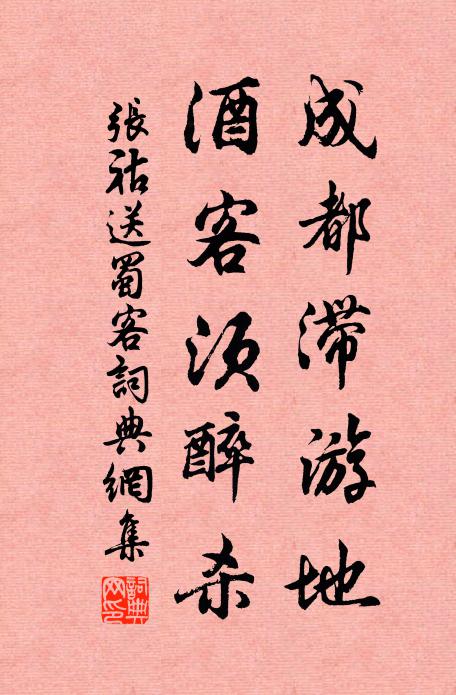 成都滞游地
酒客须醉杀
張祜送蜀客詞典網集
詞典網印